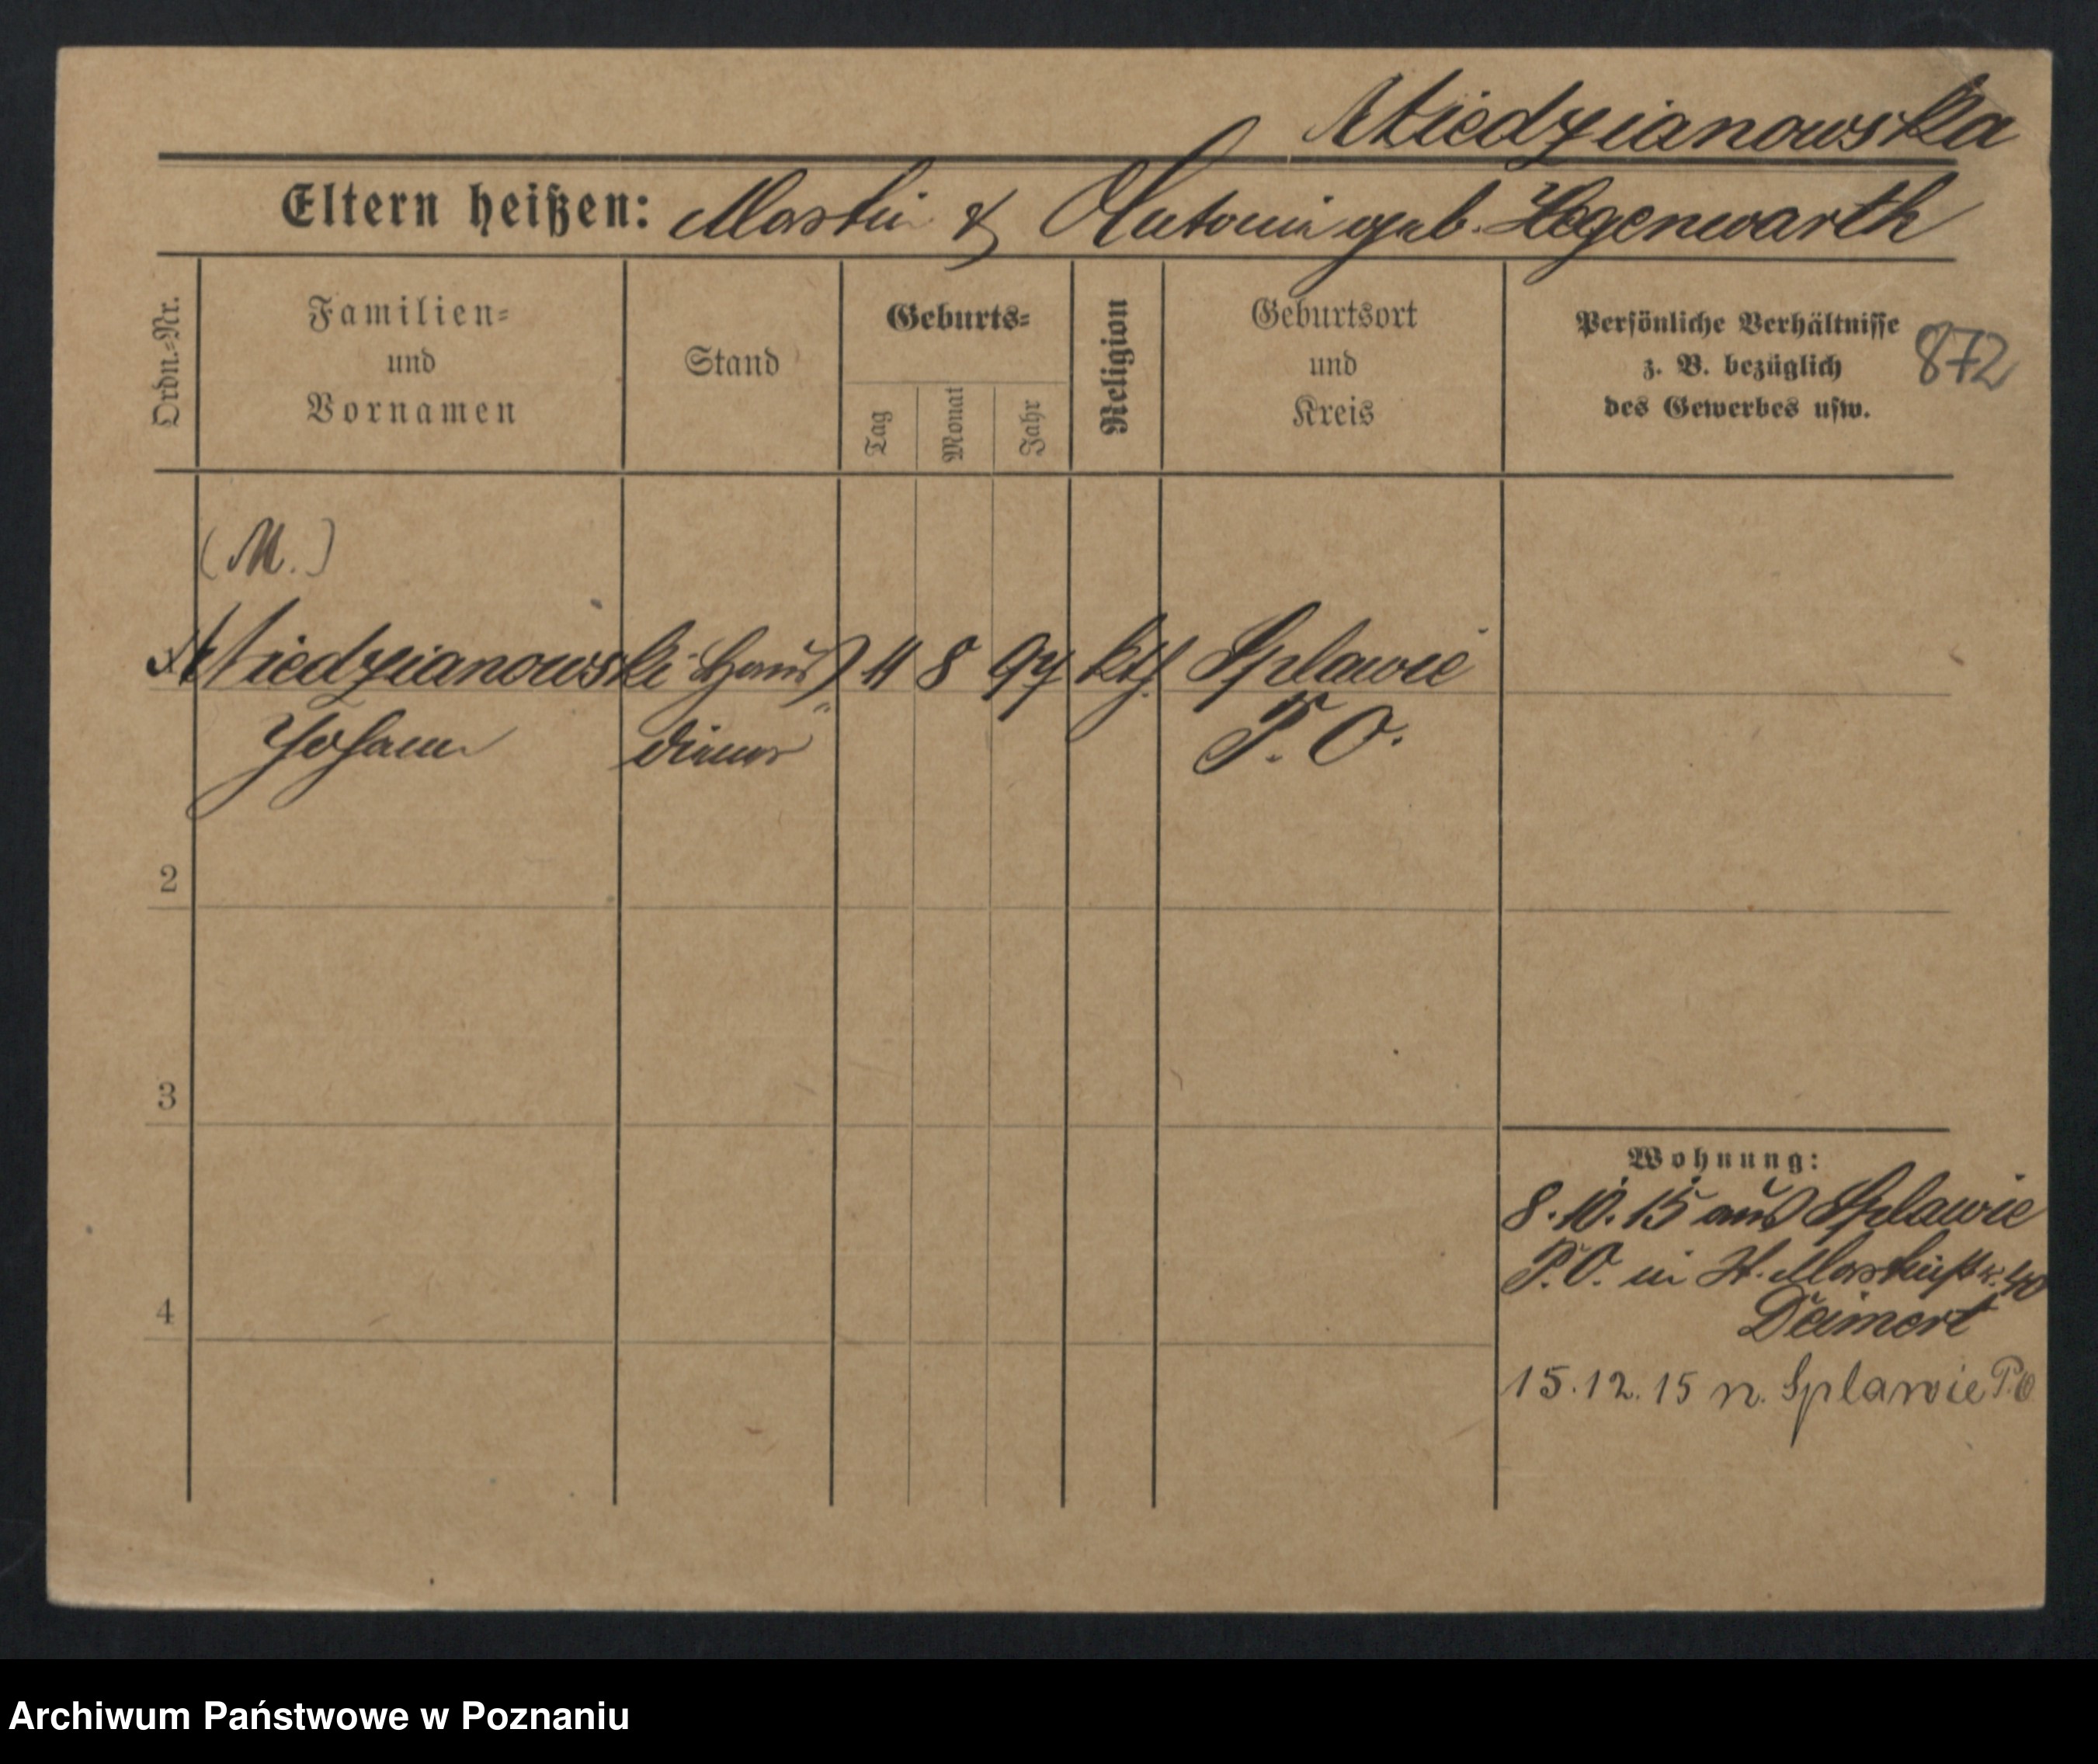 Miedzianowska
Eltern heißen: Martin & Antonin geb. Hegenwarth
Ordn.-Nr.
Familien-
und
Vornamen
Stand
Geburts-
Tag
Monat
Jahr
Religion
Geburtsort
und
Kreis
Persönliche Verhältnisse
z. B. bezüglich
des Gewerbes usw.
872
(M.)
Miedzianowski Haus 11 8 97 kth Splawie
Johann diener P. O.
2
3
4
Wohnung:
8.10.15 aus Splawie
P.O. in St. Martinstr. 40
Deimert
15.12.15 n. Splawie P.O
Archiwum Państwowe w Poznaniu